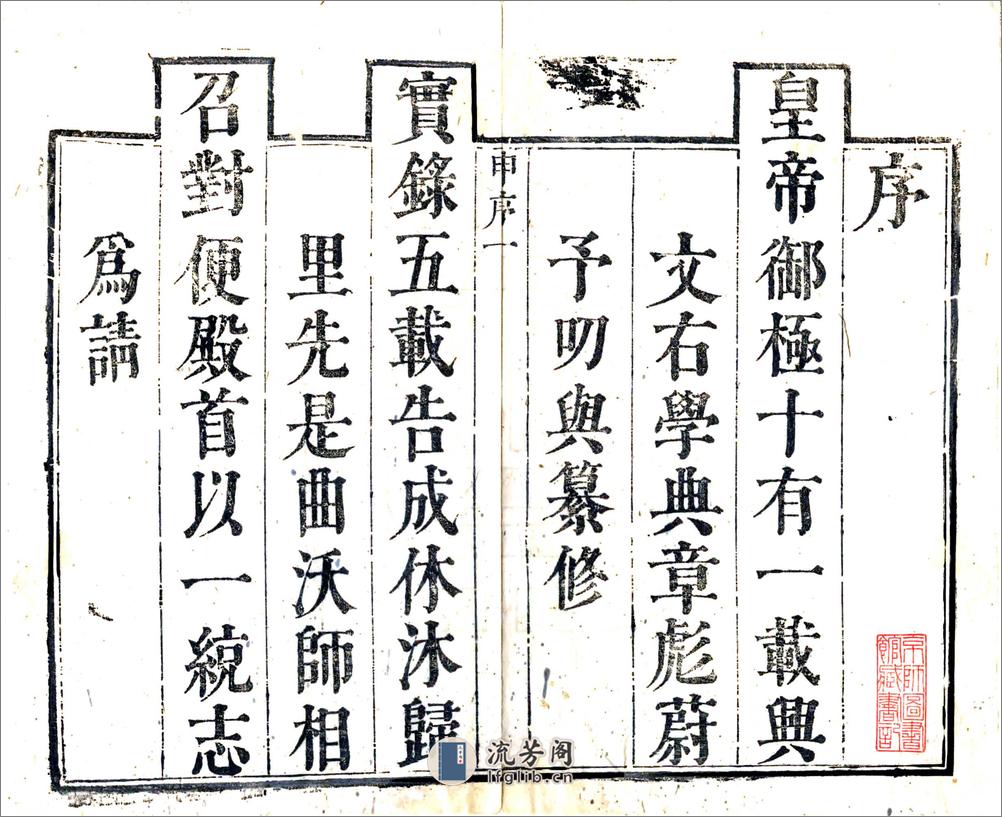 序
皇帝御極十有一載興
文右學典章彪蔚
予叨與纂修
申序一
實錄五載告成休沐歸
里先是曲沃師相
召對便殿首以一統志
爲請
京師圖書
館藏書記
流芳阁
lfglib.cn